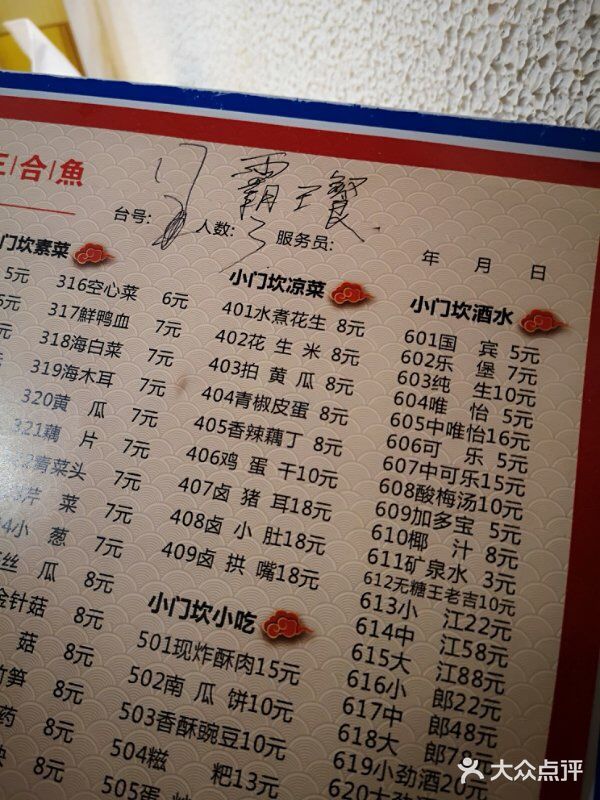 三|合|魚
霸王餐
台号: 人数:3 服务员: 年 月 日
门坎素菜
5元
316空心菜 6元
317鮮鸭血 7元
318海白菜 7元
319海木耳 7元
320黄 瓜 7元
321藕 片 7元
青菜头 7元
芹 菜 7元
小 葱 7元
丝 瓜 8元
金针菇 8元
菇 8元
竹笋 8元
药 8元
8元
小门坎凉菜
401水煮花生 8元
402花 生 米 8元
403拍 黄 瓜 8元
404青椒皮蛋 8元
405香辣藕丁 8元
406鸡 蛋 干10元
407卤 猪 耳18元
408卤 小 肚18元
409卤 拱 嘴18元
小门坎小吃
501现炸酥肉15元
502南 瓜 饼10元
503香酥豌豆10元
504糍 粑13元
505蛋
小门坎酒水
601国 宾 5元
602乐 堡 7元
603纯 生10元
604唯 怡 5元
605中唯怡16元
606可 乐 5元
607中可乐15元
608酸梅汤10元
609加多宝 5元
610椰 汁 8元
611矿泉水 3元
612无糖王老吉10元
613小 江22元
614中 江58元
615大 江88元
616小 郎22元
617中 郎48元
618大 郎78元
619小劲酒20元
620大劲酒
大众点评